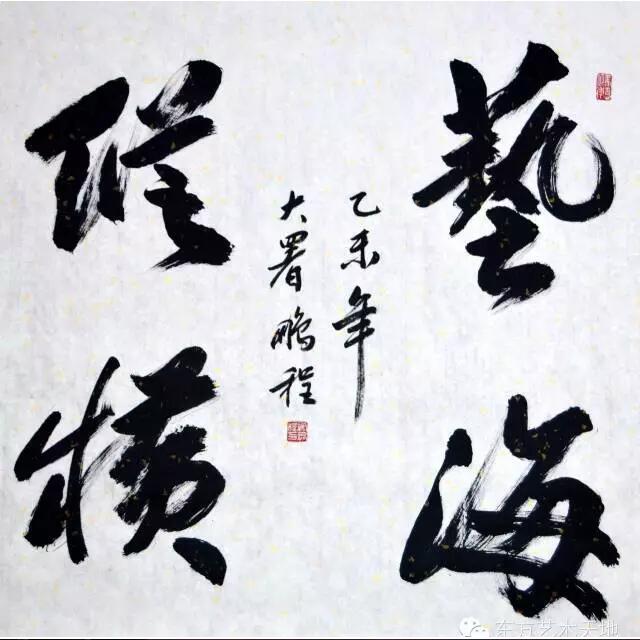 藝海
縱橫
乙未年
大暑鵬程
东方艺术天地